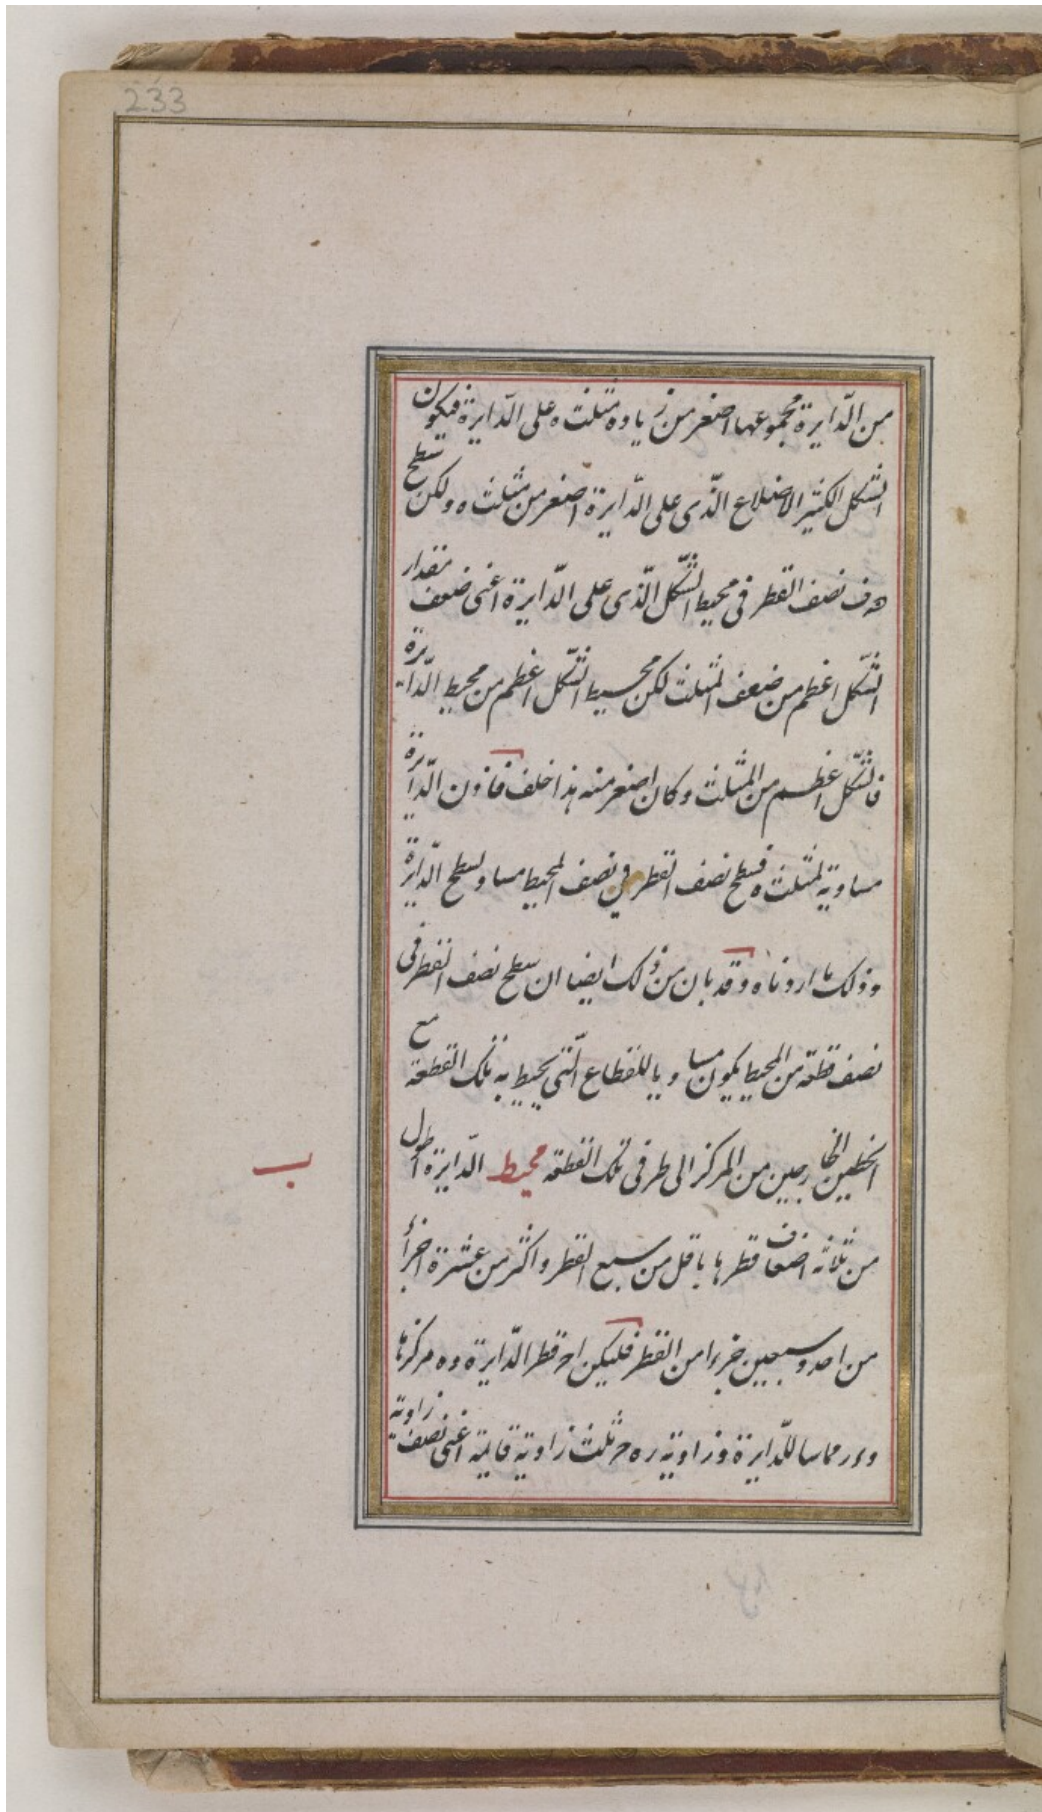 233
من الدّايرة مجموعها اصغر من زيادة مثلث ه على الدّايرة فيكون
الشكل الكثير الاضلاع الّذى على الدّايرة اصغر من مثلث ه ولكن سطح
ه ف نصف القطر فى محيط الشّكل الّذى على الدّايرة اعنى ضعف مقدار
الشّكل اعظم من ضعف المثلث لكن محيط الشّكل اعظم من محيط الدّايرة
فالشّكل اعظم من المثلث وكان اصغر منه هذا خلف فاذن الدّايرة
مساوية لمثلث ه فسطح نصف القطر فى نصف المحيط مساو لسطح الدّايرة
وذلك ما اردناه وقد بان من ذلك ايضا ان سطح نصف القطر فى
نصف قطعة من المحيط يكون مساويا للقطاع الّتى يحيط به تلك القطعة مع
الخطين الخارجين من المركز الى طرفى تلك القطعة محيط الدّايرة اطول
ب
من ثلاثة اضعاف قطرها باقل من سبع القطر واكثر من عشرة اجزأ
من احد وسبعين جزءا من القطر فليكن اح قطر الدّايرة و ه مركزها
و ء ر مماسا للدّايرة وزاوية ر ه ح ثلث زاوية قايمة اعنى نصف زاوية